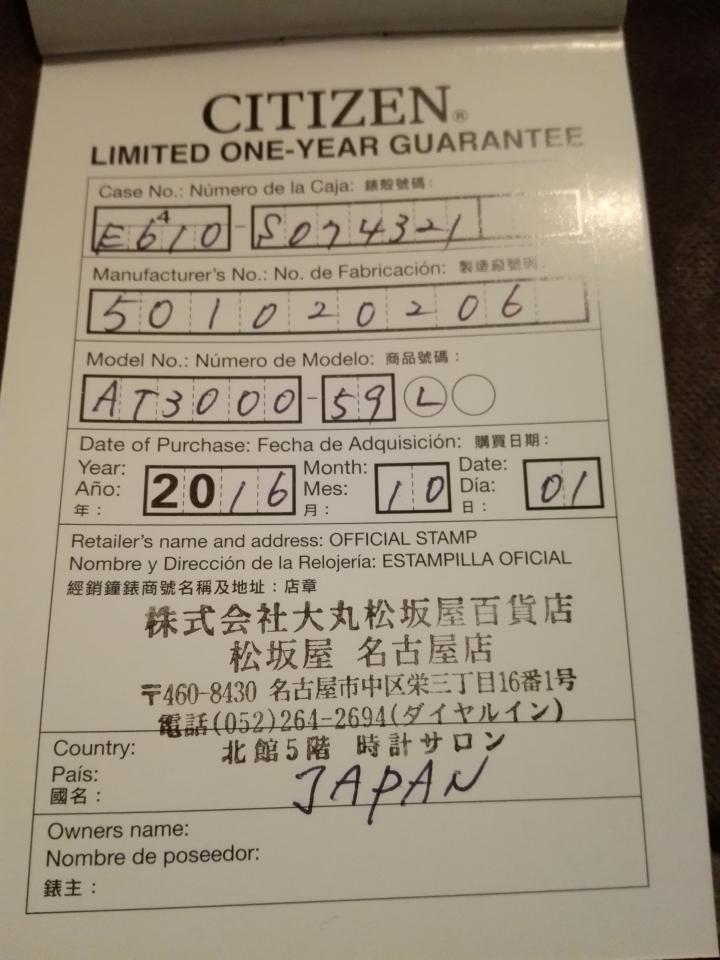 CITIZEN®
LIMITED ONE-YEAR GUARANTEE
Case No.: Número de la Caja: 錶殼號碼:
4
E610-S074321
Manufacturer's No.: No. de Fabricación: 製造廠號碼:
501020206
Model No.: Número de Modelo: 商品號碼:
AT3000-59 L
Date of Purchase: Fecha de Adquisición: 購買日期:
Year: Month: Date:
Año: 2016 Mes: 10 Día: 01
年: 月: 日:
Retailer's name and address: OFFICIAL STAMP
Nombre y Dirección de la Relojería: ESTAMPILLA OFICIAL
經銷鐘錶商號名稱及地址:店章
株式会社大丸松坂屋百貨店
松坂屋 名古屋店
〒460-8430 名古屋市中区栄三丁目16番1号
電話(052)264-2694(ダイヤルイン)
北館5階 時計サロン
Country:
País:
國名:
JAPAN
Owners name:
Nombre de poseedor:
錶主: